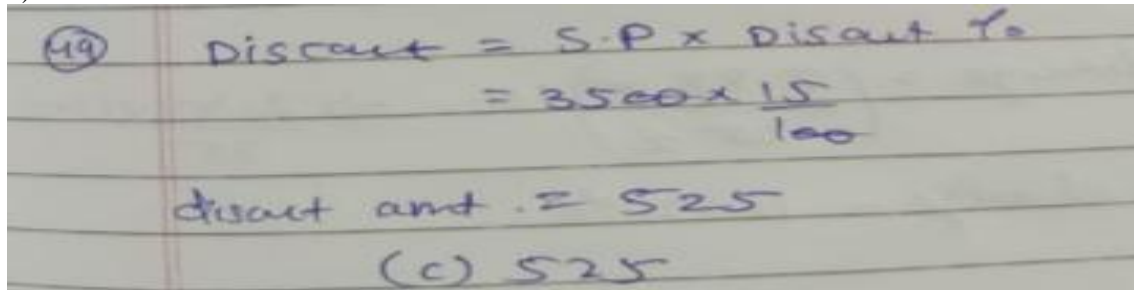 49 Discout = S.P x Disout %
= 3500 x 15/100
disout amt. = 525
(c) 525